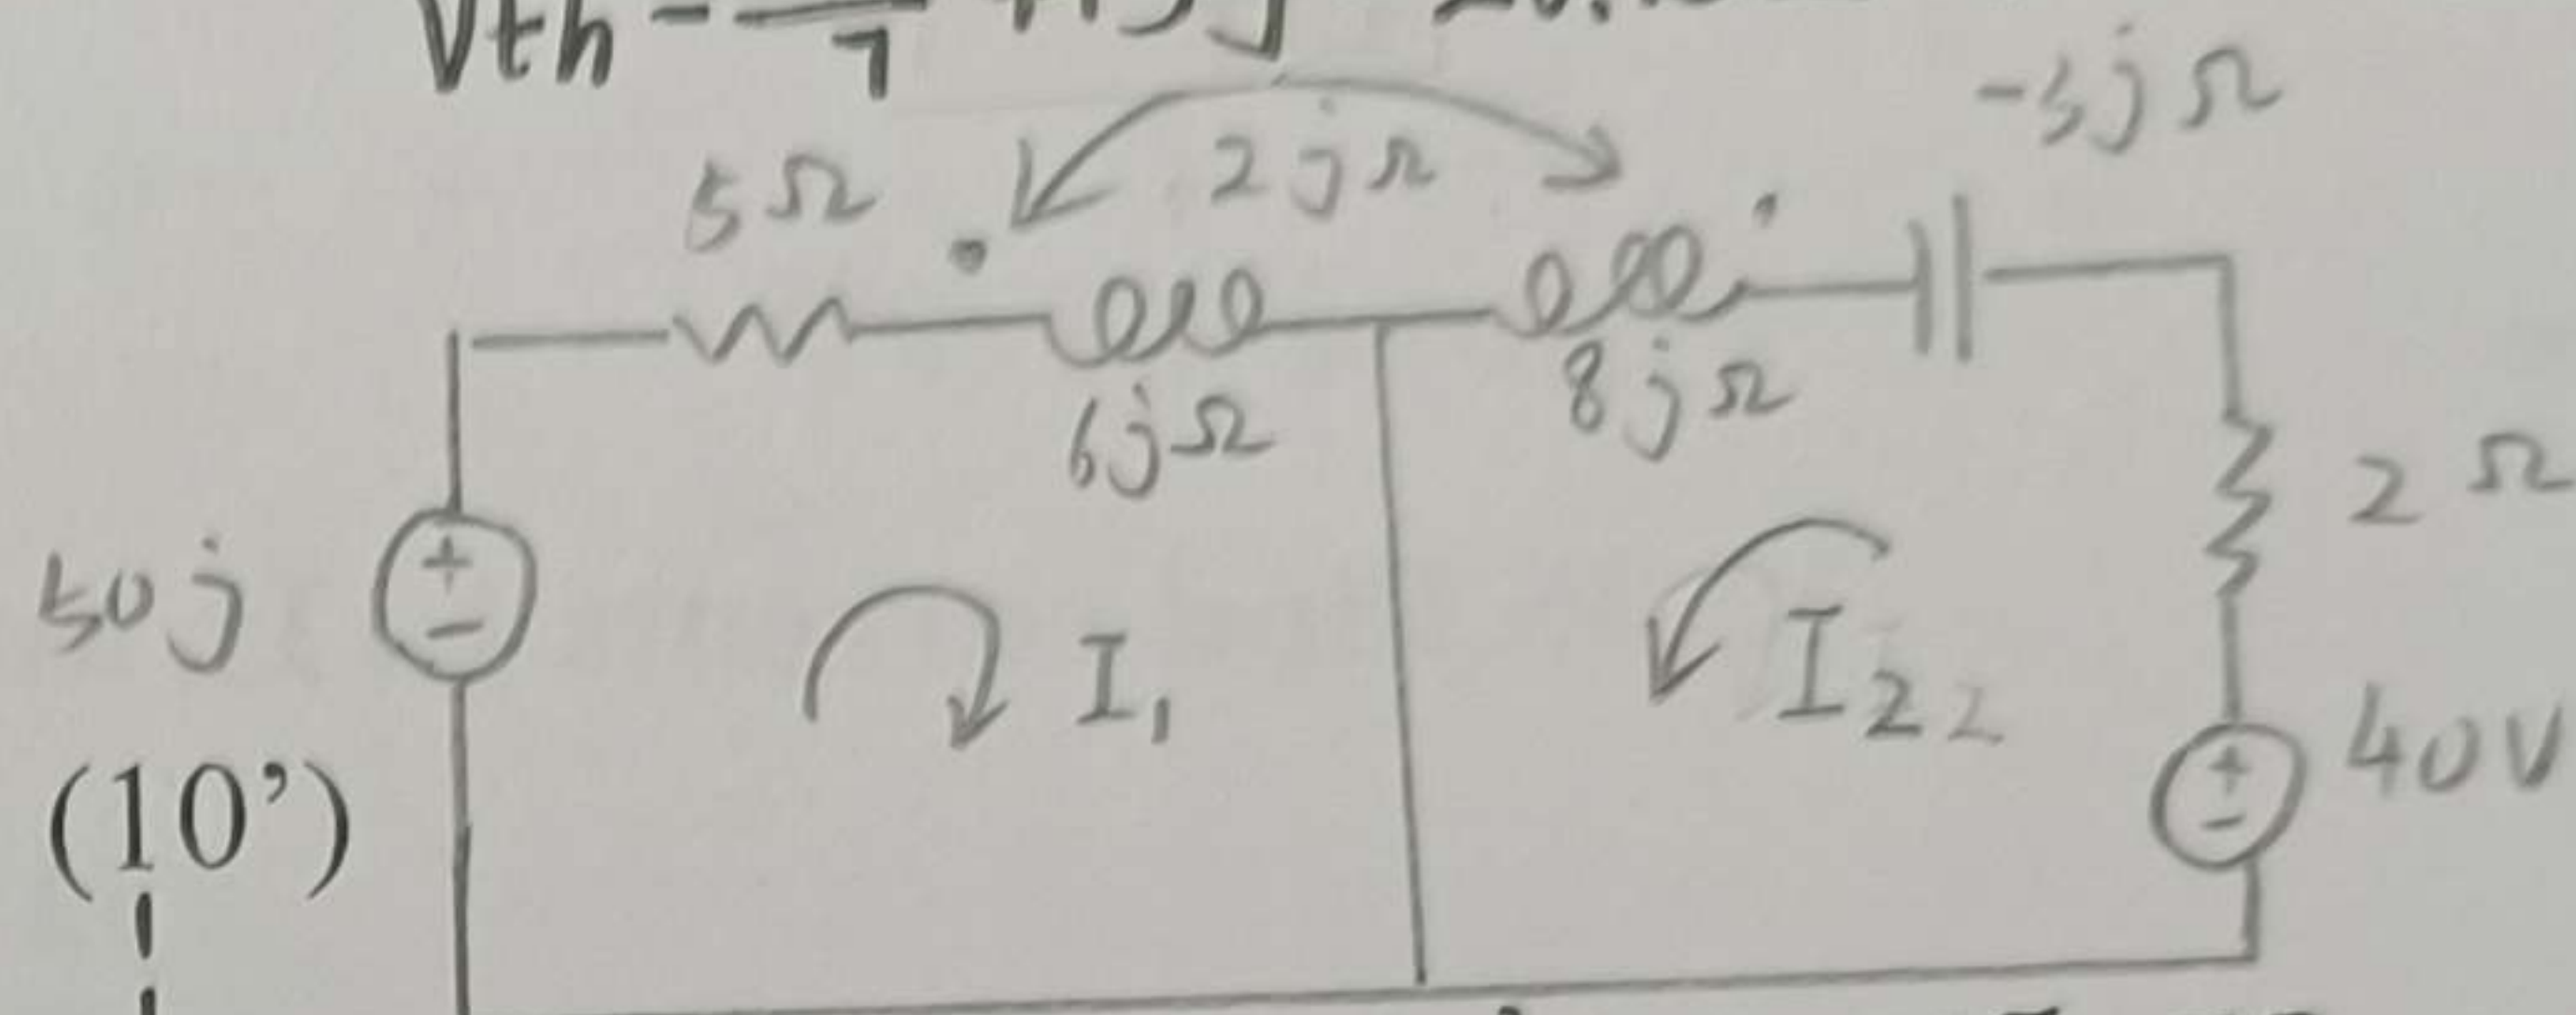 Vth = 7
-3jΩ
5Ω
2jΩ
6jΩ
8jΩ
2Ω
50j
+
-
I₁
I₂₂
40V
+
-
(10’)